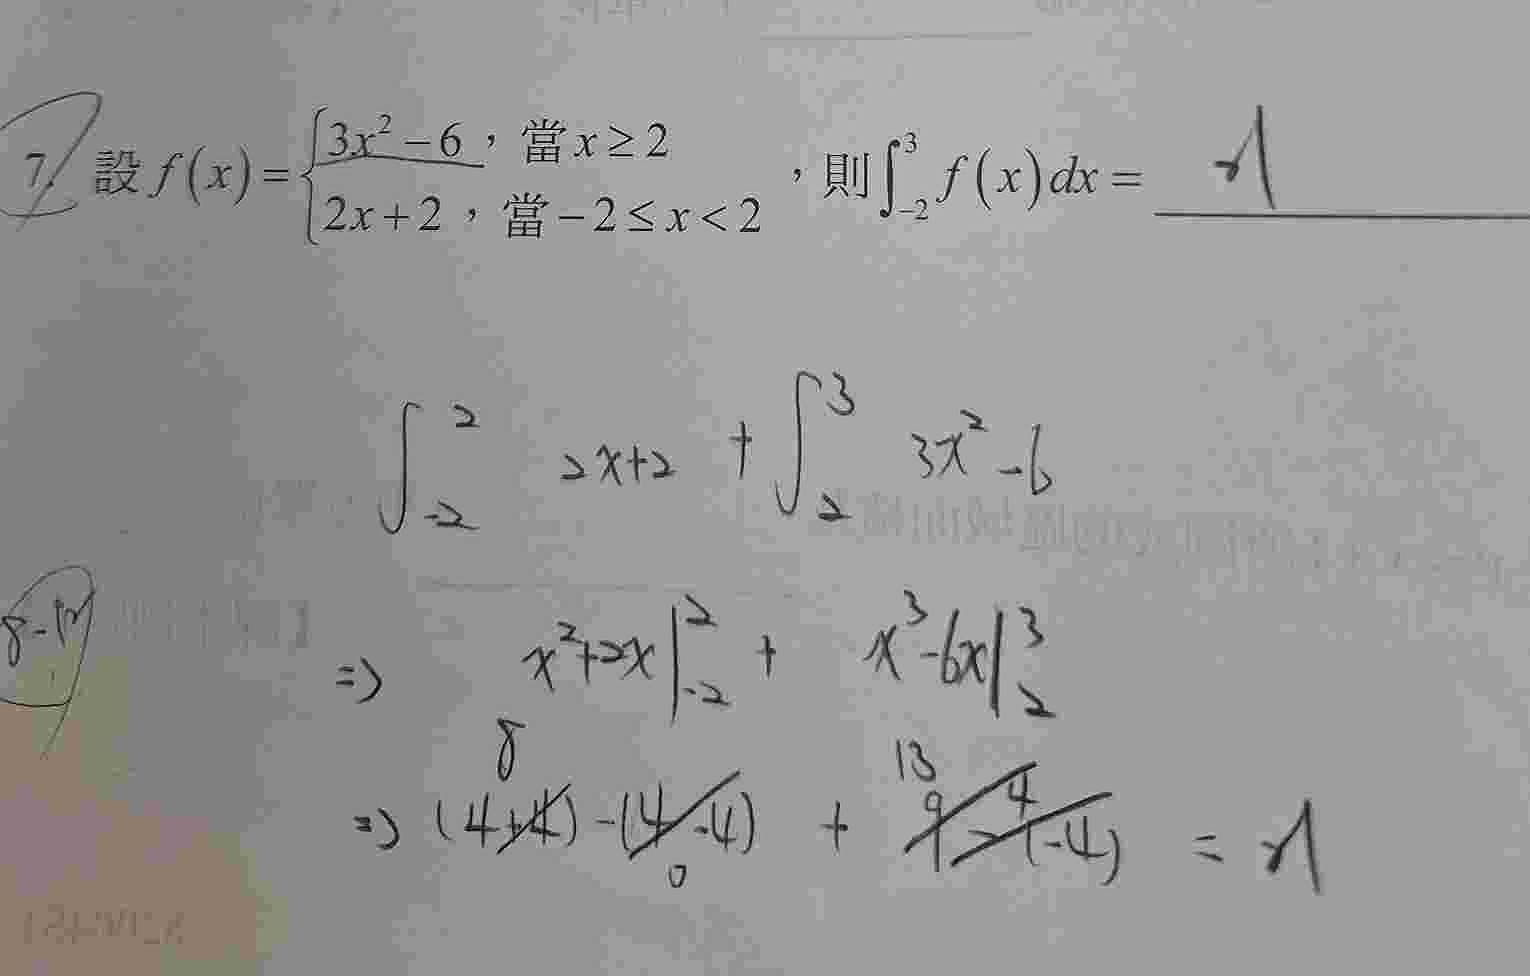 7. 設 f(x) = { 3x² - 6，當 x ≥ 2 ; 2x + 2，當 -2 ≤ x < 2 ，則 ∫_{-2}^{3} f(x) dx = 21
∫_{-2}^{2} 2x+2 + ∫_{2}^{3} 3x² - 6
⇒ x²+2x |_{-2}^{2} + x³-6x |_{2}^{3}
8 13
⇒ (4+4) - (4-4) + 9 - (-4) = 21
0 4